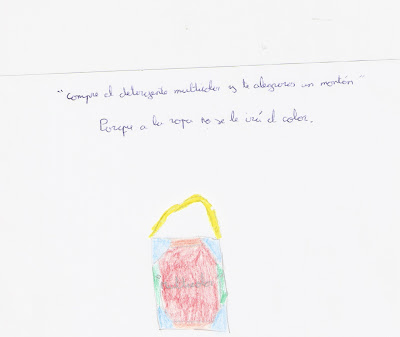 "Compre el detergente multicolor y te alegraras un montón"
Porque a la ropa no se le irá el color.